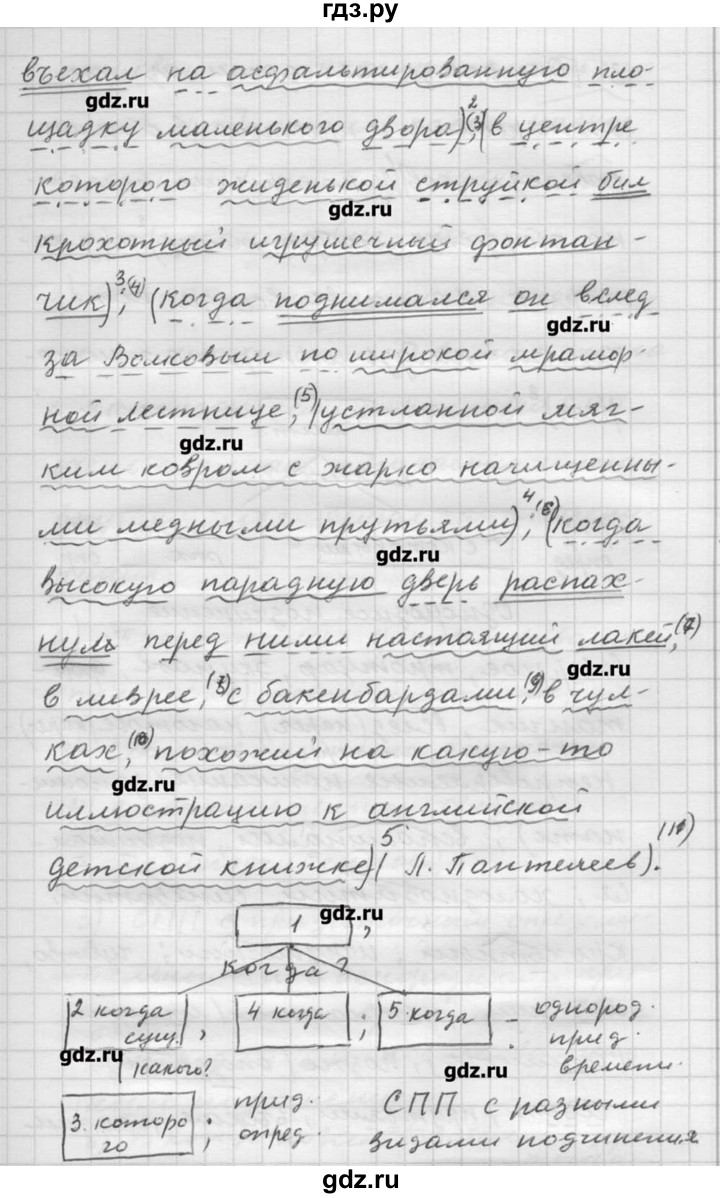 гдз.ру
въехал на асфальтированную пло-
gdz.ru
щадку маленького двора)²,⁽³⁾(в центре
которого жиденькой струйкой бил
gdz.ru
крохотный игрушечный фонтан-
чик)³,⁽⁴⁾(когда поднимался он вслед
gdz.ru
за Волковым по широкой мрамор-
ной лестнице,⁽⁵⁾ устланной мяг-
gdz.ru
ким ковром с жарко начищенны-
ми медными прутьями)⁴,⁽⁶⁾(когда
gdz.ru
высокую парадную дверь распах-
нуль перед ними настоящий лакей,⁽⁷⁾
gdz.ru
в ливрее,⁽⁸⁾ с бакенбардами,⁽⁹⁾ в чул-
ках,⁽¹⁰⁾ похожий на какую-то
gdz.ru
иллюстрацию к английской
детской книжке)⁵(Л. Пантелеев).⁽¹¹⁾
gdz.ru
1 ,
когда?
2 когда сущ. , 4 когда ; 5 когда - однород. прид. времени.
gdz.ru
какого?
gdz.ru
3. которого ; прид. опред.
СПП с разными видами подчинения
gdz.ru